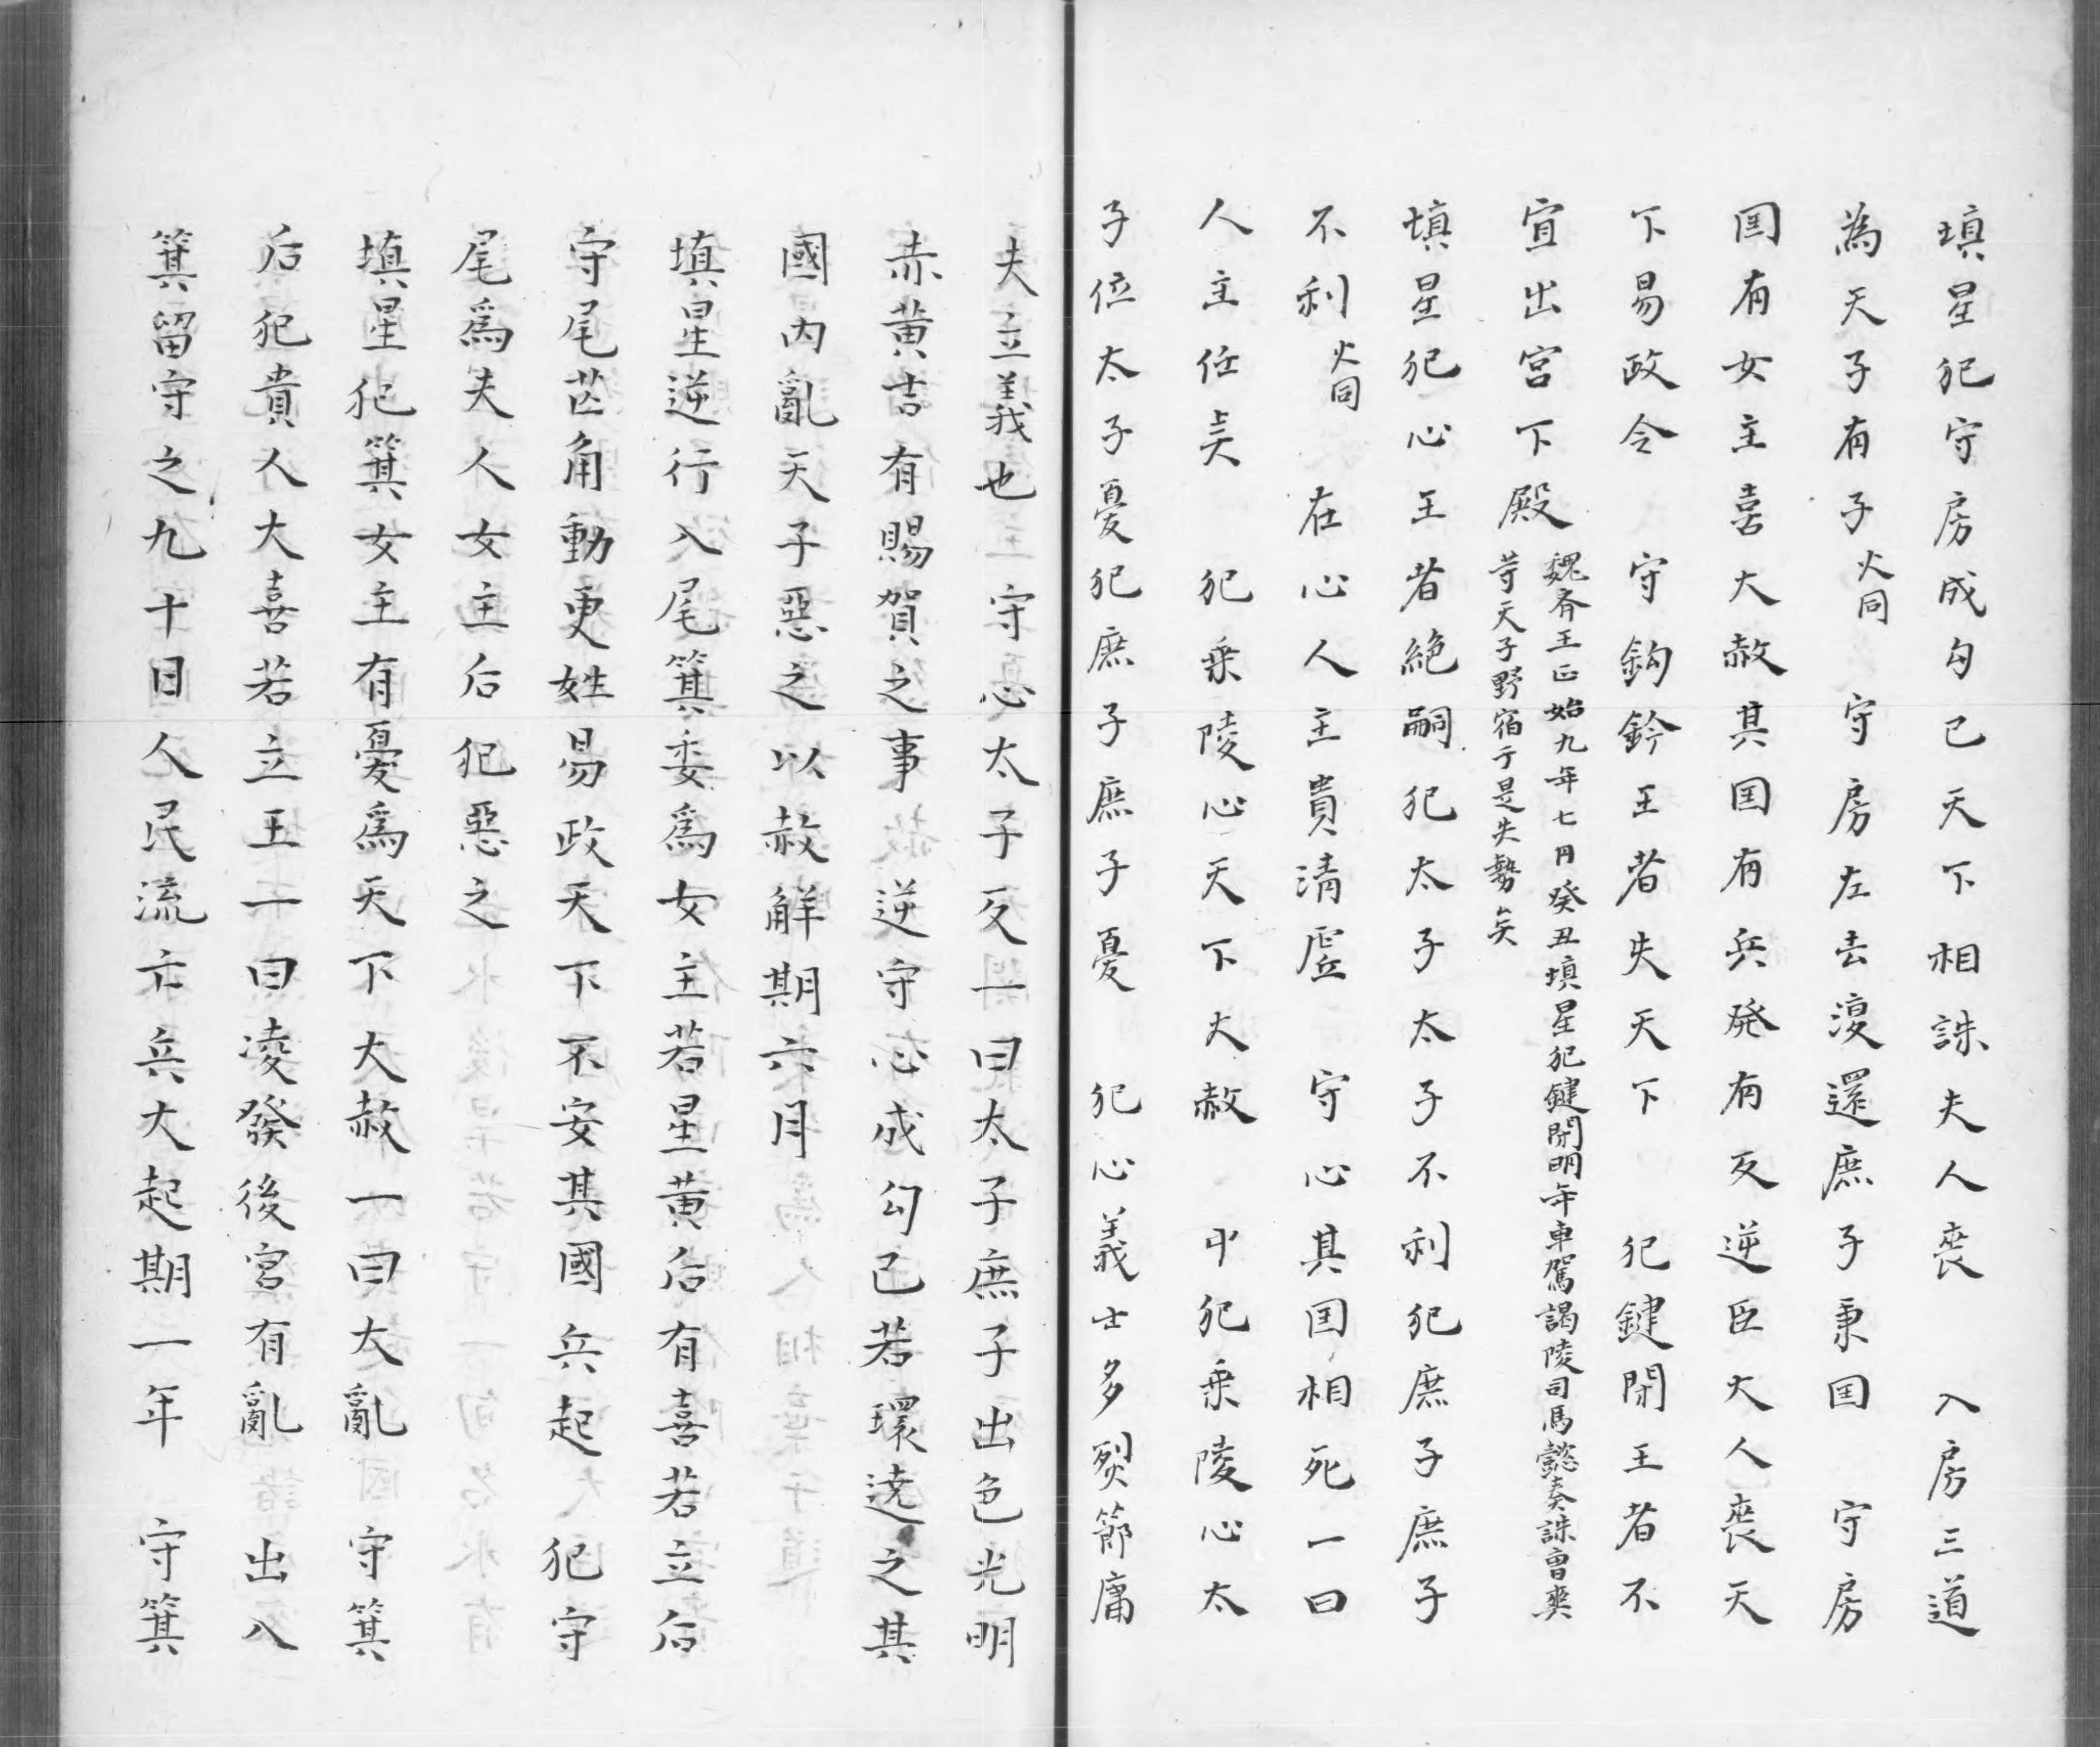 填星犯守房成勾已天下相誅夫人喪　入房三道
為天子有子火同　守房左去復還庶子秉囯　守房
囯有女主喜大赦其囯有兵発有反逆臣大人喪天
下易政令　守鈎鈐王者失天下　犯鍵閉王者不
宜出宮下殿魏齊王正始九年七月癸丑填星犯鍵閉明年車駕謁陵司馬懿奏誅曹爽
等天子野宿于是失勢矣
填星犯心王者絶嗣犯太子太子不利犯庶子庶子
不利火同　在心人主貴清虛　守心其囯相死一曰
人主任　犯乗陵心天下大赦　中犯乗陵心太
子位太子憂犯庶子庶子憂　犯心義士多烈節庸
夫立義也　守心太子反一曰太子庶子出色光明
赤黄吉有賜賀之事　逆守心成勾已若環遶之其
國内亂天子惡之以赦解期六月
填星逆行入尾箕委爲女主若星黄后有喜若立后
守尾芒角動更姓易政天下不安其國兵起　犯守
尾爲夫人女主后犯惡之
填星犯箕女主有憂爲天下大赦一曰大亂　守箕
后犯貴人大喜若立王一曰凌發後宮有亂　出入
箕留守之九十日人民流亡兵大起期一年　守箕